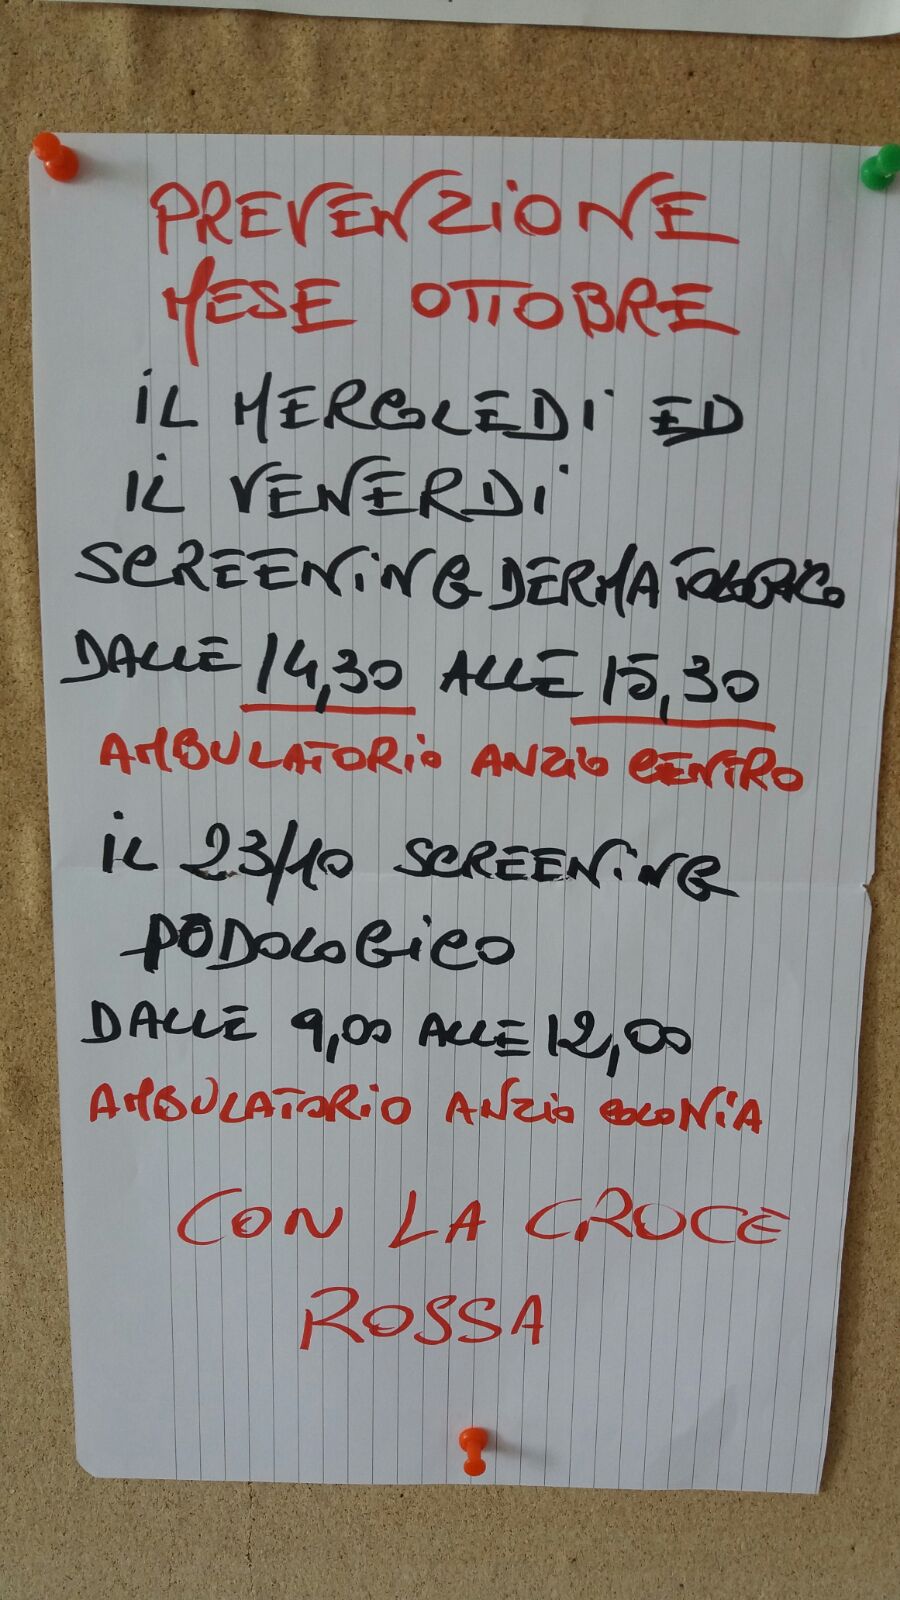 PREVENZIONE
MESE OTTOBRE
IL MERCOLEDI ED
IL VENERDI
SCREENING DERMATOLOGICO
DALLE 14,30 ALLE 15,30
AMBULATORIO ANZIO CENTRO
IL 23/10 SCREENING
PODOLOGICO
DALLE 9,00 ALLE 12,00
AMBULATORIO ANZIO COLONIA
CON LA CROCE
ROSSA